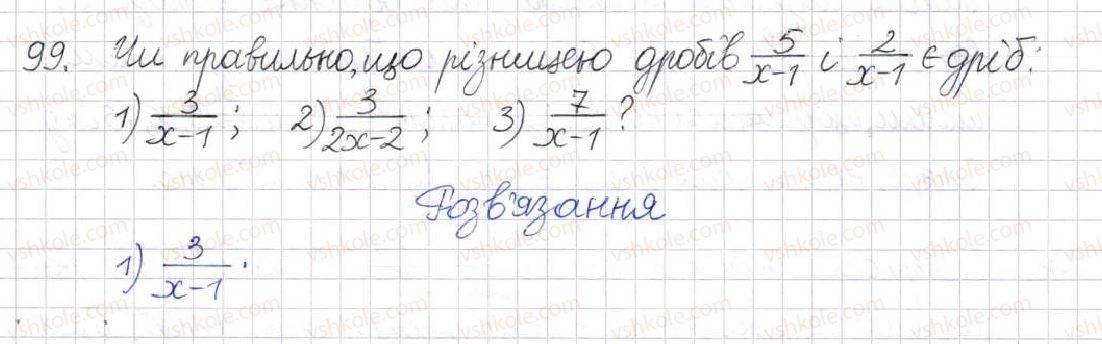 99. Чи правильно, що різницею дробів 5/(x-1) і 2/(x-1) є дріб:
1) 3/(x-1); 2) 3/(2x-2); 3) 7/(x-1)?
Розв'язання
1) 3/(x-1).